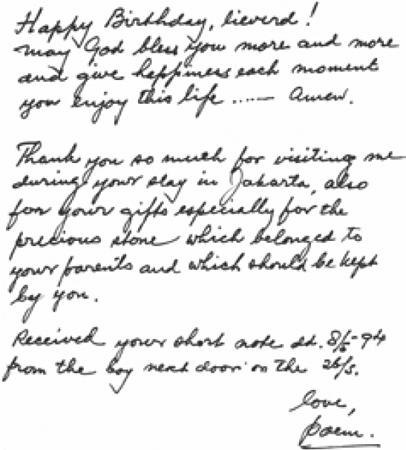 Happy Birthday, lieverd!
May God bless you more and more
and give happiness each moment
you enjoy this life ..... — Amen.
Thank you so much for visiting me
during your stay in Jakarta, also
for your gifts especially for the
precious stone which belonged to
your parents and which should be kept
by you.
Received your short note dd. 8/5-94
from the boy next door on the 26/5.
love,
Poem.